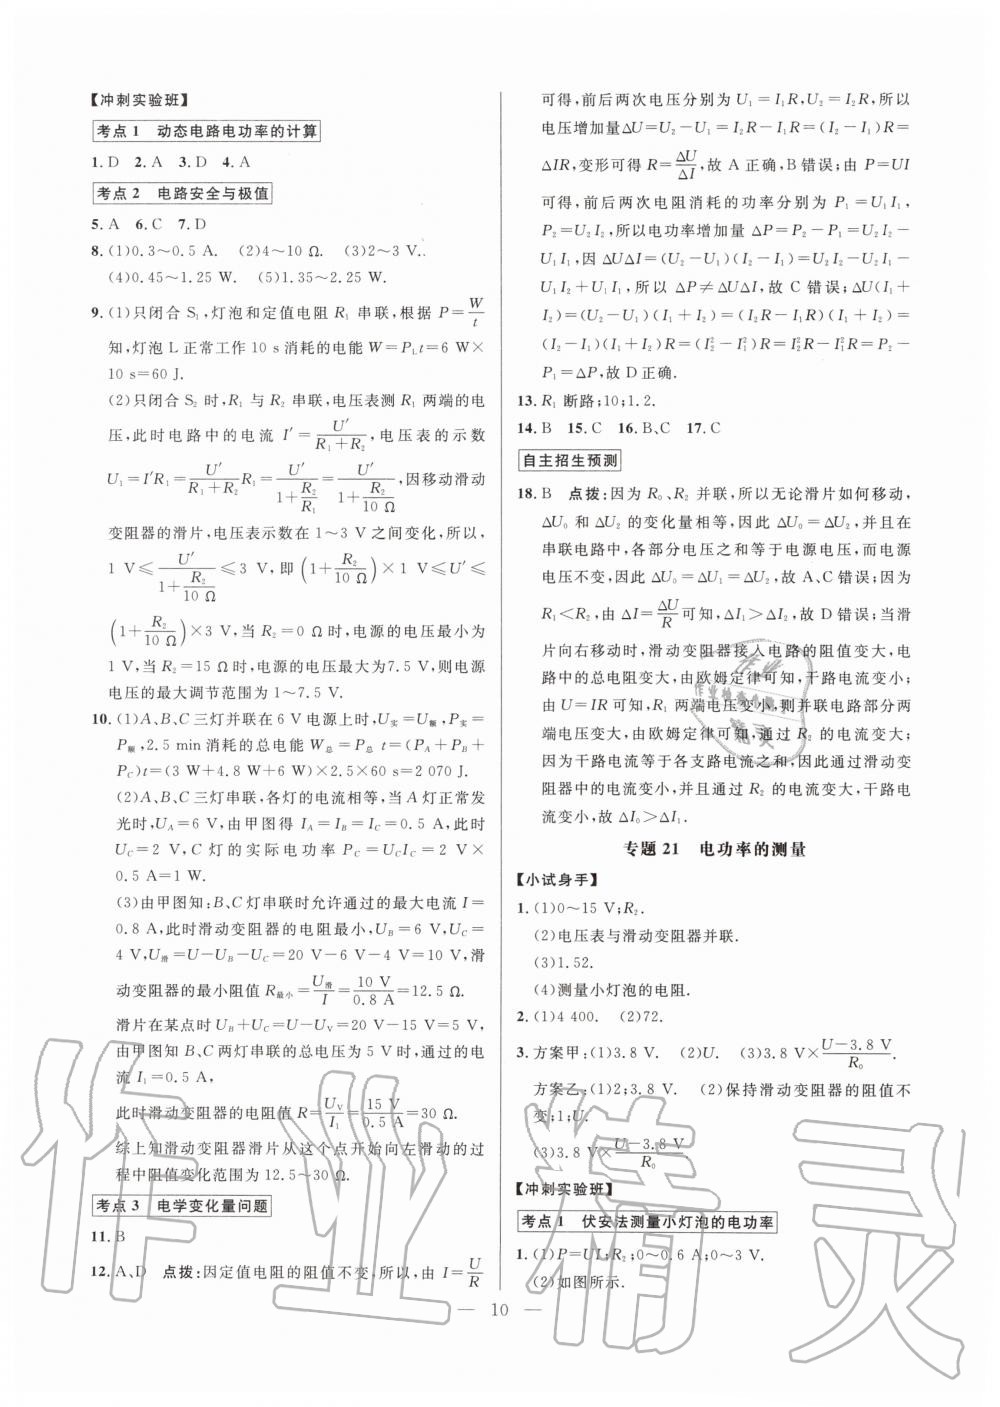 【冲刺实验班】
考点1 动态电路电功率的计算
1. D 2. A 3. D 4. A
考点2 电路安全与极值
5. A 6. C 7. D
8. (1)0.3～0.5 A. (2)4～10 Ω. (3)2～3 V.
(4)0.45～1.25 W. (5)1.35～2.25 W.
9. (1)只闭合 S₁,灯泡和定值电阻 R₁ 串联,根据 P=W/t
知,灯泡 L 正常工作 10 s 消耗的电能 W=P_L t=6 W×
10 s=60 J.
(2)只闭合 S₂ 时,R₁ 与 R₂ 串联,电压表测 R₁ 两端的电
压,此时电路中的电流 I′=U′/(R₁+R₂),电压表的示数
U₁=I′R₁=U′/(R₁+R₂) R₁=U′/(1+R₂/R₁)=U′/(1+R₂/10 Ω),因移动滑动
变阻器的滑片,电压表示数在 1～3 V 之间变化,所以,
1 V≤U′/(1+R₂/10 Ω)≤3 V,即(1+R₂/10 Ω)×1 V≤U′≤
(1+R₂/10 Ω)×3 V,当 R₂=0 Ω时,电源的电压最小为
1 V,当 R₂=15 Ω时,电源的电压最大为7.5 V,则电源
电压的最大调节范围为 1～7.5 V.
10. (1)A、B、C 三灯并联在 6 V 电源上时,U实=U额,P实=
P额,2.5 min 消耗的总电能 W总=P总 t=(P_A+P_B+
P_C)t=(3 W+4.8 W+6 W)×2.5×60 s=2 070 J.
(2)A、B、C 三灯串联,各灯的电流相等,当 A 灯正常发
光时,U_A=6 V,由甲图得 I_A=I_B=I_C=0.5 A,此时
U_C=2 V,C 灯的实际电功率 P_C=U_C I_C=2 V×
0.5 A=1 W.
(3)由甲图知:B、C灯串联时允许通过的最大电流 I=
0.8 A,此时滑动变阻器的电阻最小,U_B=6 V,U_C=
4 V,U滑=U-U_B-U_C=20 V-6 V-4 V=10 V,滑
动变阻器的最小阻值 R最小=U滑/I=10 V/0.8 A=12.5 Ω.
滑片在某点时 U_B+U_C=U-U_V=20 V-15 V=5 V,
由甲图可知 B、C 两灯串联的总电压为 5 V时,通过的电
流 I₁=0.5 A,
此时滑动变阻器的电阻值 R=U_V/I₁=15 V/0.5 A=30 Ω.
综上知滑动变阻器滑片从这个点开始向左滑动的过
程中阻值变化范围为 12.5～30 Ω.
考点3 电学变化量问题
11. B
12. A、D 点拨:因定值电阻的阻值不变,所以,由 I=U/R
可得,前后两次电压分别为 U₁=I₁R,U₂=I₂R,所以
电压增加量ΔU=U₂-U₁=I₂R-I₁R=(I₂-I₁)R=
ΔIR,变形可得 R=ΔU/ΔI,故 A 正确,B 错误;由 P=UI
可得,前后两次电阻消耗的功率分别为 P₁=U₁I₁,
P₂=U₂I₂,所以电功率增加量 ΔP=P₂-P₁=U₂I₂-
U₁I₁,因 ΔUΔI=(U₂-U₁)(I₂-I₁)=U₂I₂-U₂I₁-
U₁I₂+U₁I₁,所以 ΔP≠ΔUΔI,故 C 错误;ΔU(I₁+
I₂)=(U₂-U₁)(I₁+I₂)=(I₂R-I₁R)(I₁+I₂)=
(I₂-I₁)(I₁+I₂)R=(I₂²-I₁²)R=I₂²R-I₁²R=P₂-
P₁=ΔP,故 D正确.
13. R₁ 断路;10;1.2.
14. B 15. C 16. B、C 17. C
自主招生预测
18. B 点拨:因为 R₀、R₂ 并联,所以无论滑片如何移动,
ΔU₀ 和 ΔU₂ 的变化量相等,因此 ΔU₀=ΔU₂,并且在
串联电路中,各部分电压之和等于电源电压,而电源
电压不变,因此 ΔU₀=ΔU₁=ΔU₂,故 A、C 错误;因为
R₁<R₀,由 ΔI=ΔU/R 可知,ΔI₁>ΔI₀,故 D 错误;当滑
片向右移动时,滑动变阻器接入电路的阻值变大,电
路中的总电阻变大,由欧姆定律可知,干路电流变小;
由 U=IR可知,R₁ 两端电压变小,则并联电路部分两
端电压变大,由欧姆定律可知,通过 R₀ 的电流变大;
因为干路电流等于各支路电流之和,因此通过滑动变
阻器中的电流变小,并且 R₀ 的电流变大,干路电
流变小,故 ΔI₀>ΔI₁.
专题 21 电功率的测量
【小试身手】
1. (1)0～15 V;R₂.
(2)电压表与滑动变阻器并联.
(3)1.52.
(4)测量小灯泡的电阻.
2. (1)4 400. (2)72.
3. 方案甲:(1)3.8 V. (2)U. (3)3.8 V×(U-3.8 V)/R₀.
方案乙:(1)2;3.8 V. (2)保持滑动变阻器的阻值不
变;1;U.
(3)3.8 V×(U-3.8 V)/R₀.
【冲刺实验班】
考点1 伏安法测量小灯泡的电功率
1. (1)P=UI;R₂;0～0.6 A;0～3 V.
(2)如图所示.
— 10 —
作业精灵